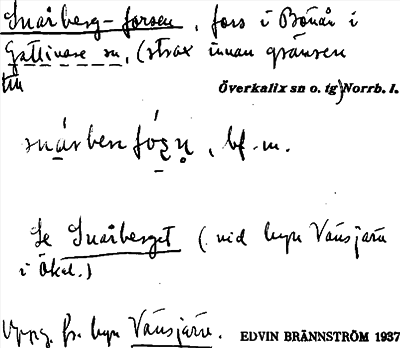 Snårberg-forsen, fors i Bönån i
Gällivare sn, (strax innan gränsen
till Överkalix sn o. tg) Norrb. l.
bf. m.
Se Snårberget (vid byn Vänsjärv
i Ökal.)
Uppg. fr. byn Vänsjärv. EDVIN BRÄNNSTRÖM 1937